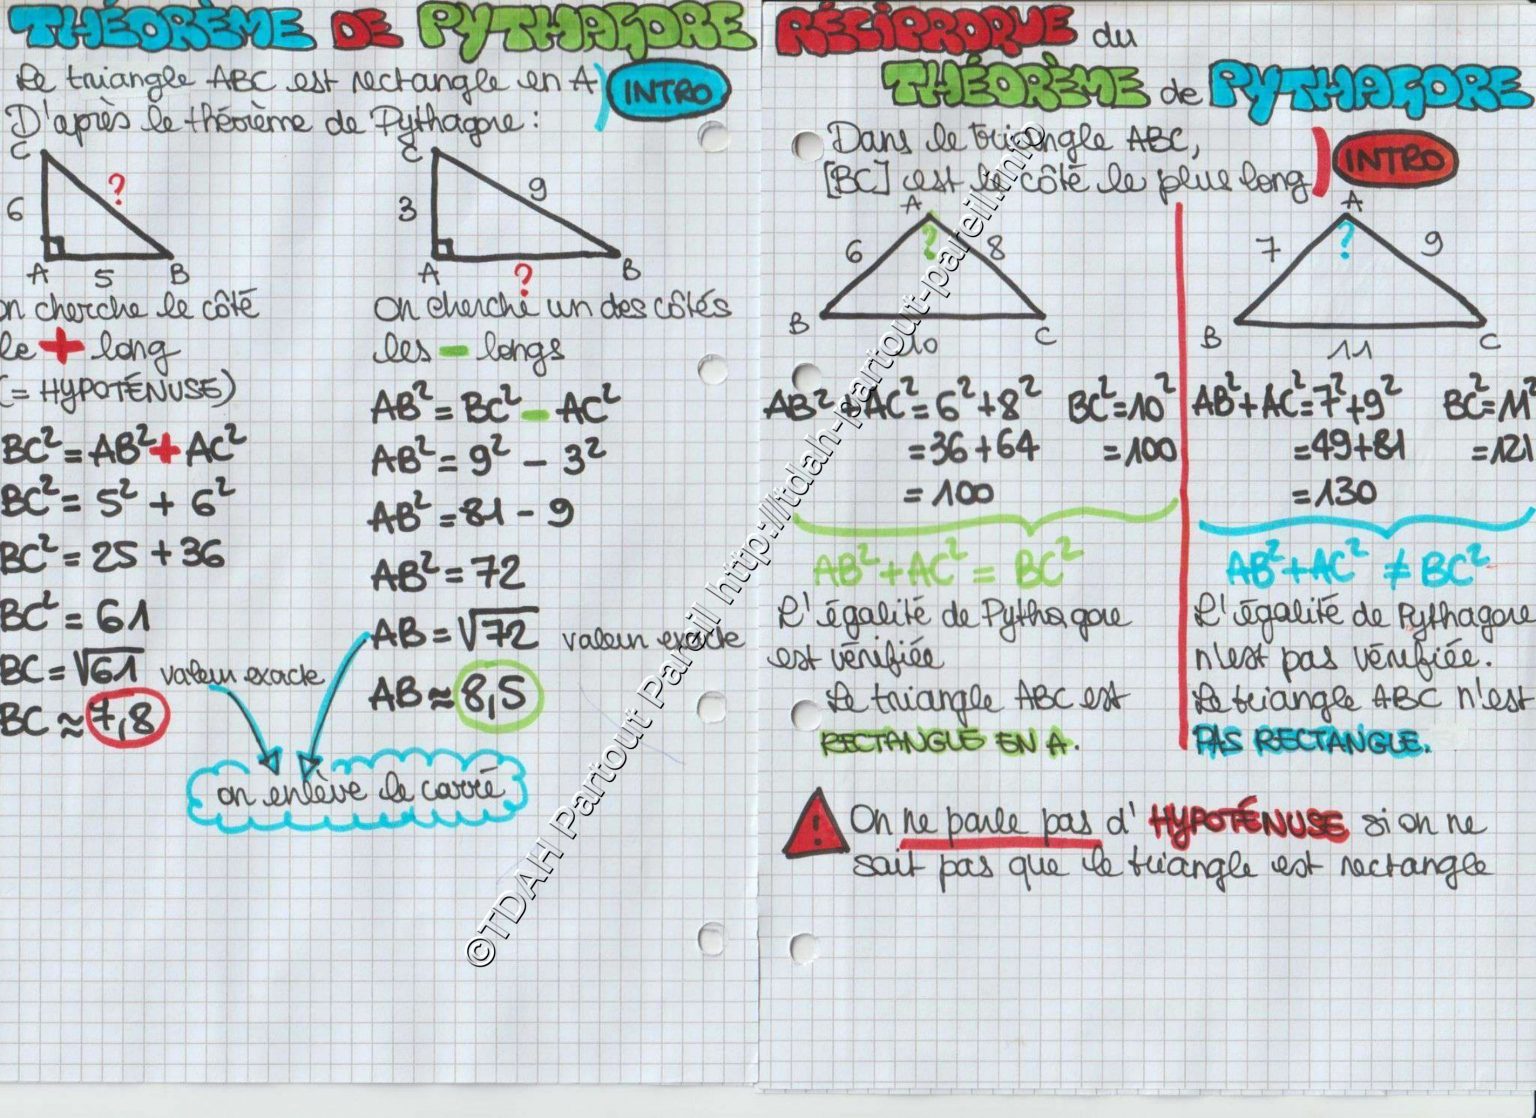 THÉORÈME DE PYTHAGORE
Le triangle ABC est rectangle en A
INTRO
D'après le théorème de Pythagore :
C
?
6
A
5
B
on cherche le côté
le + long
(= HYPOTÉNUSE)
BC² = AB² + AC²
BC² = 5² + 6²
BC² = 25 + 36
BC² = 61
BC = √61 valeur exacte
BC ≈ 7,8
C
9
3
A
?
B
On cherche un des côtés
les - longs
AB² = BC² - AC²
AB² = 9² - 3²
AB² = 81 - 9
AB² = 72
AB = √72 valeur exacte
AB ≈ 8,5
on enlève le carré
RÉCIPROQUE du
THÉORÈME de PYTHAGORE
Dans le triangle ABC,
[BC] est le côté le plus long
INTRO
A
?
6
8
B
C
10
AB² + AC² = 6² + 8² BC² = 10²
= 36 + 64 = 100
= 100
AB² + AC² = BC²
L'égalité de Pythagore
est vérifiée
Le triangle ABC est
RECTANGLE EN A.
A
?
7
9
B
C
11
AB² + AC² = 7² + 9² BC² = 11²
= 49 + 81 = 121
= 130
AB² + AC² ≠ BC²
L'égalité de Pythagore
n'est pas vérifiée.
Le triangle ABC n'est
PAS RECTANGLE.
! On ne parle pas d'HYPOTÉNUSE si on ne
sait pas que le triangle est rectangle
©TDAH Partout Pareil http://tdah-partout-pareil.info